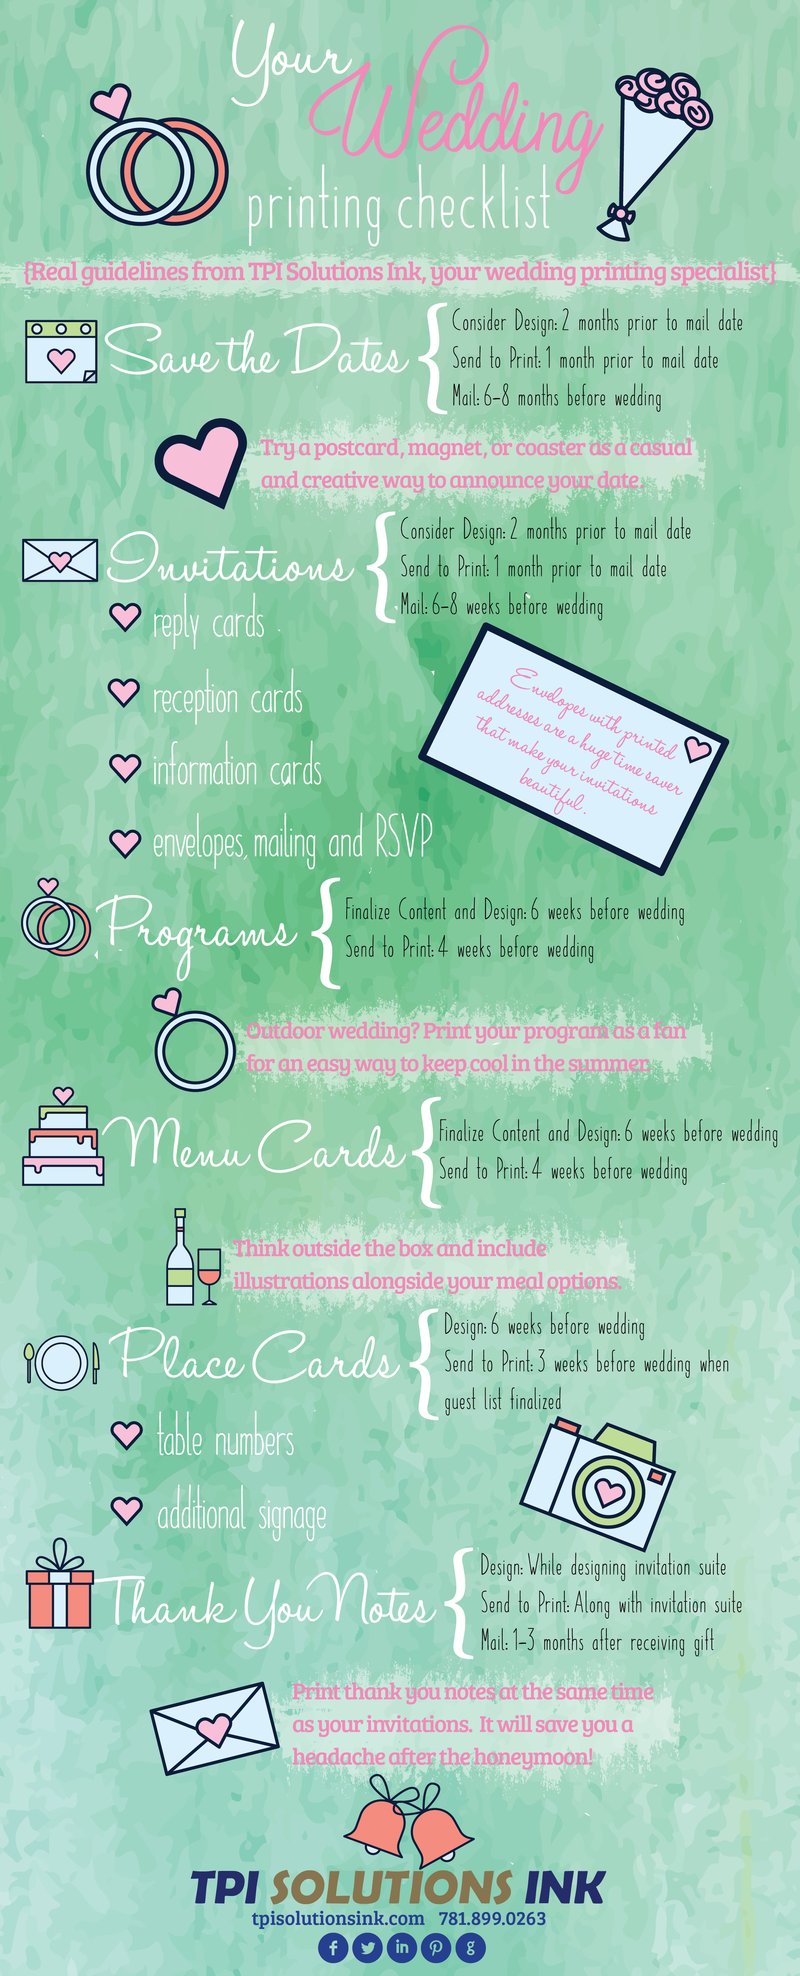 Your
Wedding
printing checklist
{Real guidelines from TPI Solutions Ink, your wedding printing specialist}
Save the Dates
Consider Design: 2 months prior to mail date
Send to Print: 1 month prior to mail date
Mail: 6-8 months before wedding
Try a postcard, magnet, or coaster as a casual
and creative way to announce your date.
Invitations
Consider Design: 2 months prior to mail date
Send to Print: 1 month prior to mail date
Mail: 6-8 weeks before wedding
reply cards
reception cards
information cards
envelopes, mailing and RSVP
Envelopes with printed
addresses are a huge time saver
that make your invitations
beautiful.
Programs
Finalize Content and Design: 6 weeks before wedding
Send to Print: 4 weeks before wedding
Outdoor wedding? Print your program as a fan
for an easy way to keep cool in the summer.
Menu Cards
Finalize Content and Design: 6 weeks before wedding
Send to Print: 4 weeks before wedding
Think outside the box and include
illustrations alongside your meal options.
Place Cards
Design: 6 weeks before wedding
Send to Print: 3 weeks before wedding when
guest list finalized
table numbers
additional signage
Thank You Notes
Design: While designing invitation suite
Send to Print: Along with invitation suite
Mail: 1-3 months after receiving gift
Print thank you notes at the same time
as your invitations. It will save you a
headache after the honeymoon!
TPI SOLUTIONS INK
tpisolutionsink.com 781.899.0263